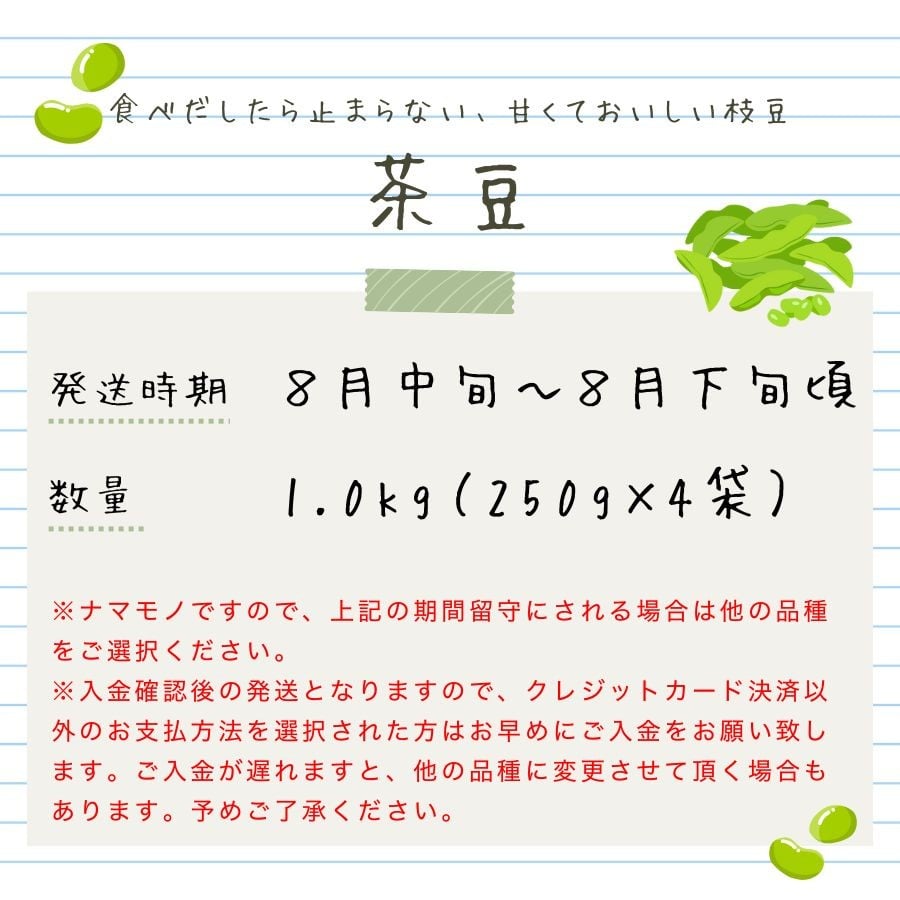 食べだしたら止まらない、甘くておいしい枝豆
茶豆
発送時期 8月中旬〜8月下旬頃
数量 1.0kg(250g×4袋)
※ナマモノですので、上記の期間留守にされる場合は他の品種
をご選択ください。
※入金確認後の発送となりますので、クレジットカード決済以
外のお支払方法を選択された方はお早めにご入金をお願い致し
ます。ご入金が遅れますと、他の品種に変更させて頂く場合も
あります。予めご了承ください。